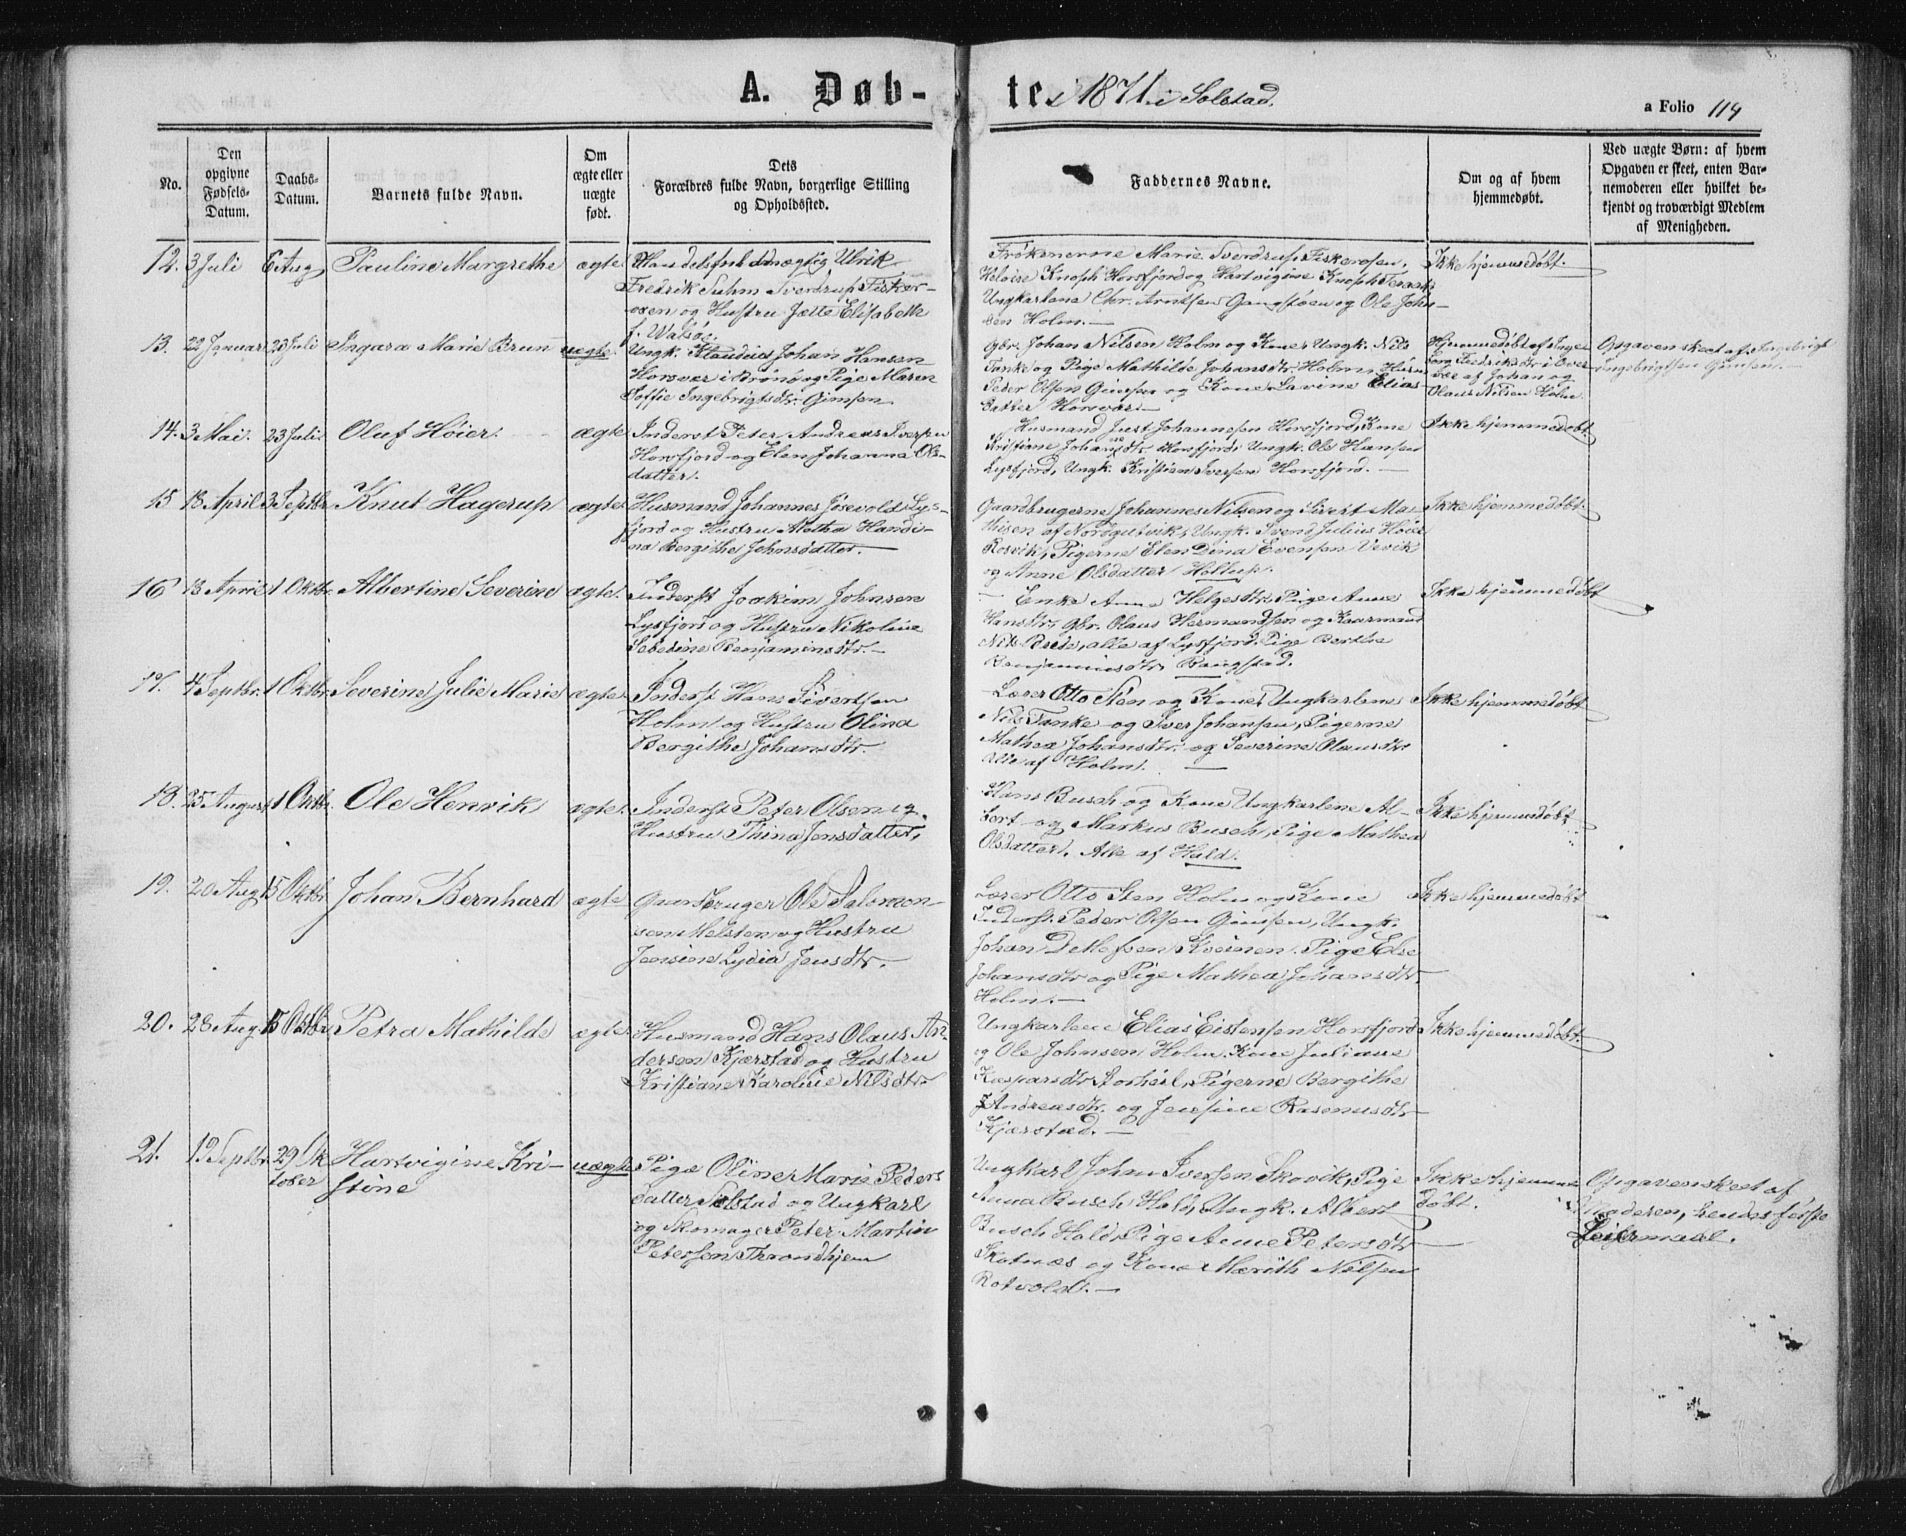 A. Døb- te i 1871 i Solstad.
a Folio 114
No.
Den
opgivne
Fødsels-
Datum.
Daabs-
Datum.
Barnets fulde Navn.
Om
ægte eller
uægte
født.
Dets
Forældres fulde Navn, borgerlige Stilling
og Opholdssted.
Faddernes Navne.
Om og af hvem
hjemmedøbt.
Ved uægte Børn: af hvem
Opgaven er skeet, enten Bar-
nemoderen eller hvilket be-
kjendt og troværdigt Medlem
af Menigheden.
12. 3 Juli 6 Aug Pauline Margrethe ægte Handelsfuldmægtig Ulrik
Fredrik Suhm Sverdrup Fisker-
osen og Hustru Jette Elisabeth
f. Watsøe.
Frøknerne Marie Sverdrup Fiskerosen,
Heloise Knoph Horsfjord og Hartvigine Knoph Teraak,
Ungkarlene Chr. Arntsen Gangstøen og Ole John-
sen Holm.
Ikke hjemmedøbt.
13. 22 Januar 23 Juli Ingara Marie Brun uægte Ungk. Klaudius Johan Hansen
Horsvær i Brønø og Pige Maren
Soffie Ingebrigtsdtr. Gimsen
Gbr. Johan Nilsen Holm og Kone, Ungk. Nils
Tanke og Pige Mathilde Johansdtr Holm,
Peder Olsen Gimsen og Kone Lavine Elias-
datter Horsvær.
Hjemmedøbt af Inge-
borg Fredriksdtr i Over-
vær af Johan og
Olaus Nilsen Holm.
Opgaven skeet af Ingebrigt
Ingebrigtsen Gimsen.
14. 3 Mai. 23 Juli. Oluf Höier. ægte Inderst Peter Andreas Iversen
Horsfjord og Elen Johanna Ols-
datter.
Husmand Just Johannesen Horsfjord, Kone
Kristiane Johansdtr Horsfjord, Ungk. Ole Hansen
Lysfjord, Ungk. Kristian Iversen Horsfjord.
Ikke hjemmedøbt.
15 18 April 3 Septbr Knut Hagerup ægte Husmand Johannes Jösevold Lys-
fjord og Hustru Aletha Handi-
na Bergithe Johnsdatter.
Gaardbrugerne Johannes Nilsen og Sivert Ma-
thisen af Nordgutvik, Ungk. Svend Julius Höier
Rosvik, Pigerne Elen Dina Evensen Vevik
og Anne Olsdatter Hollup.
Ikke hjemmedøbt.
16 13 April 1 Oktbr. Albertine Severine ægte. Inderst Joakim Johnsen
Lysfjord og Hustru Nikoline
Sebedine Benjaminsdtr.
Enke Anne Helgesdtr, Pige Anne
Hansdtr, Gbr. Olaus Hermandsen og Kaarmand
Nils Brede, alle af Lysfjord. Pige Berthe
Benjaminsdtr Bangstad.
Ikke hjemmedøbt
17. 4 Septbr. 1 Oktbr. Severine Julie Marie ægte. Inderst Hans Sivertsen
Holm og Hustru Olina
Bergithe Johansdtr.
Lærer Otto Sten og Kone, Ungkarlene
Nils Tanke og Iver Johansen, Pigerne
Mathea Johansdtr. og Severine Olausdtr.
Alle af Holm.
Ikke hjemmedøbt
18. 25 August 1 Oktbr. Ole Henrik ægte. Inderst Peter Olsen og
Hustru Thina Jensdatter,
Hans Busch og Kone Ungkarlene Al-
bert og Markus Busch, Pige Mathea
Olsdatter. Alle af Hald.
Ikke hjemmedøbt
19. 20 Aug 15 Oktbr. Johan Bernhard ægte Gaardbruger Ole Salomon-
sen Melsten og Hustru
Jensine Lydia Jensdtr.
Lærer Otto Sten Holm og Kone
Inderst. Peder Olsen Gimsen, Ungk.
Johan Detlefsen Kveinen. Pige Else
Johansdtr og Pige Mathea Johansdtr
Holm.
Ikke hjemmedøbt
20. 28 Aug 15 Oktbr. Petra Mathilde ægte Husmand Hans Olaus An-
dersen Kjærstad og Hustru
Kristiane Karoline Nilsdtr
Ungkarlene Elias Eistensen Horsfjord
og Ole Johnsen Holm. Kone Juliane
Kasparsdtr Aarheil, Pigerne Bergithe
Andreasdtr. og Jensine Rasmusdtr
Kjærstad.
Ikke hjemmedøbt.
21. 19 Septbr. 29 Ok-
tober Hartvigine Kri-
stine uægte Pige Oline Marie Peders
datter Solstad og Ungkarl
og Skomager Peter Martin
Petersen Throndhjem
Ungkarl Johan Iversen Skovik, Pige
Anna Busch Hald, Ungk. Albert
Busch Hald, Pige Anne Petersdtr
Skotnæs og Kone Mærith Nilsen
Rotvold.
Ikke hjemme
døbt.
Opgaven skeet af
Moderen, hendes første
Leiermaal.